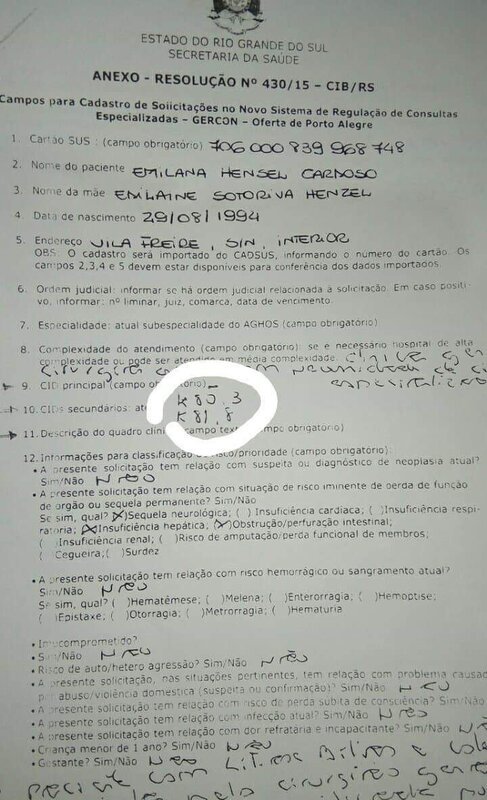 ESTADO DO RIO GRANDE DO SUL
SECRETARIA DA SAÚDE
ANEXO - RESOLUÇÃO Nº 430/15 – CIB/RS
Campos para Cadastro de Solicitações no Novo Sistema de Regulação de Consultas
Especializadas – GERCON – Oferta de Porto Alegre
1. Cartão SUS : (campo obrigatório) 706 000 839 968 748
2. Nome do paciente EMILANA HENSEL CARDOSO
3. Nome da mãe EMILAINE SOTORIVA HENZEL
4. Data de nascimento 29/08/1994
5. Endereço VILA FREIRE, SIN, INTERIOR
OBS: O cadastro será importado do CADSUS, informando o numero do cartão. Os
campos 2,3,4 e 5 devem estar disponíveis para conferência dos dados importados.
6. Ordem judicial: informar se há ordem judicial relacionada à solicitação. Em caso positi-
vo, informar: nº liminar, juiz, comarca, data de vencimento.
7. Especialidade: atual subespecialidade do AGHOS (campo obrigatório)
8. Complexidade do atendimento (campo obrigatório): se é necessário hospital de alta
complexidade ou pode ser atendido em média complexidade.
9. CID principal (campo obrigatório) K80.3
10. CIDs secundários: K81.8
11. Descrição do quadro clínico (campo obrigatório)
12. Informações para classificação de risco/prioridade (campo obrigatório):
• A presente solicitação tem relação com suspeita ou diagnóstico de neoplasia atual?
Sim/Não NÃO
• A presente solicitação tem relação com situação de risco iminente de perda de função
de órgão ou sequela permanente? Sim/Não
Se sim, qual? (X)Sequela neurológica; ( ) Insuficiência cardiaca; ( )Insuficiência respi-
ratória; (X)Insuficiência hepática; (X)Obstrução/perfuração intestinal;
( )Insuficiência renal; ( )Risco de amputação/perda funcional de membros;
( )Cegueira;( )Surdez
• A presente solicitação tem relação com risco hemorrágico ou sangramento atual?
Sim/Não NÃO
Se sim, qual? ( )Hematêmese; ( )Melena; ( )Enterorragia; ( )Hemoptise;
( )Epistaxe; ( )Otorragia; ( )Metrorragia; ( )Hematúria
• Imucomprometido?
Sim/Não NÃO
• Risco de auto/hetero agressão? Sim/Não NÃO
• A presente solicitação, nas situações pertinentes, tem relação com problema causado
por abuso/violência domestica (suspeita ou confirmação)? Sim/Não NÃO
• A presente solicitação tem relação com risco de perda súbita de consciência? Sim/Não
• A presente solicitação tem relação com infecção atual? Sim/Não NÃO
• A presente solicitação tem relação com dor refratária e incapacitante? Sim/Não NÃO
• Criança menor de 1 ano? Sim/Não NÃO
• Gestante? Sim/Não NÃO